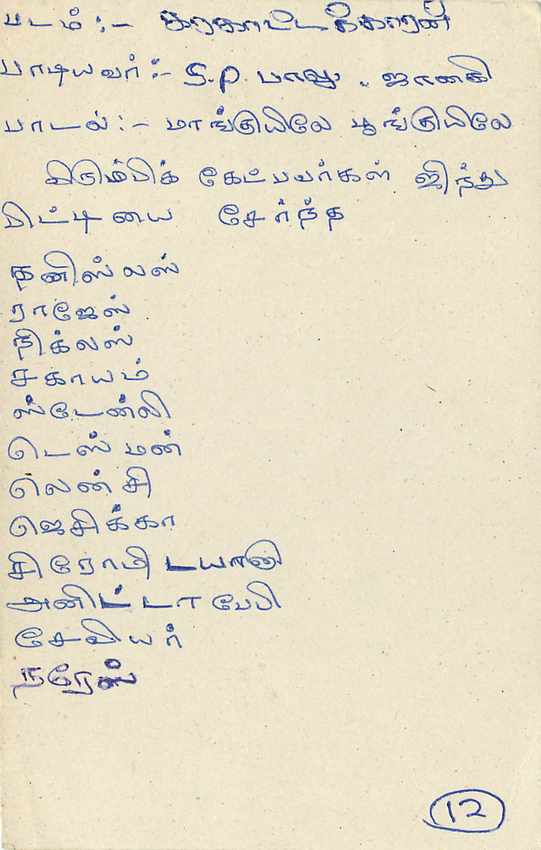 படம் :- கரகாட்டக்கோரன்
பாடியவர் :- S.P. பாலு . ஜானகி
பாடல் :- மாங்குயிலே பூங்குயிலே
விரும்பிக் கேட்பவர்கள் ஜிந்து
பிட்டியை சேர்ந்த
தனிஸ்லஸ்
ராஜேஸ்
நிக்லஸ்
சகாயம்
ஸ்டேன்லி
டெஸ்மன்
லென்சி
ஜெசிக்கா
சிரோமி டயானி
அனிட்டா பேபி
சேவியர்
நரேஸ்
12